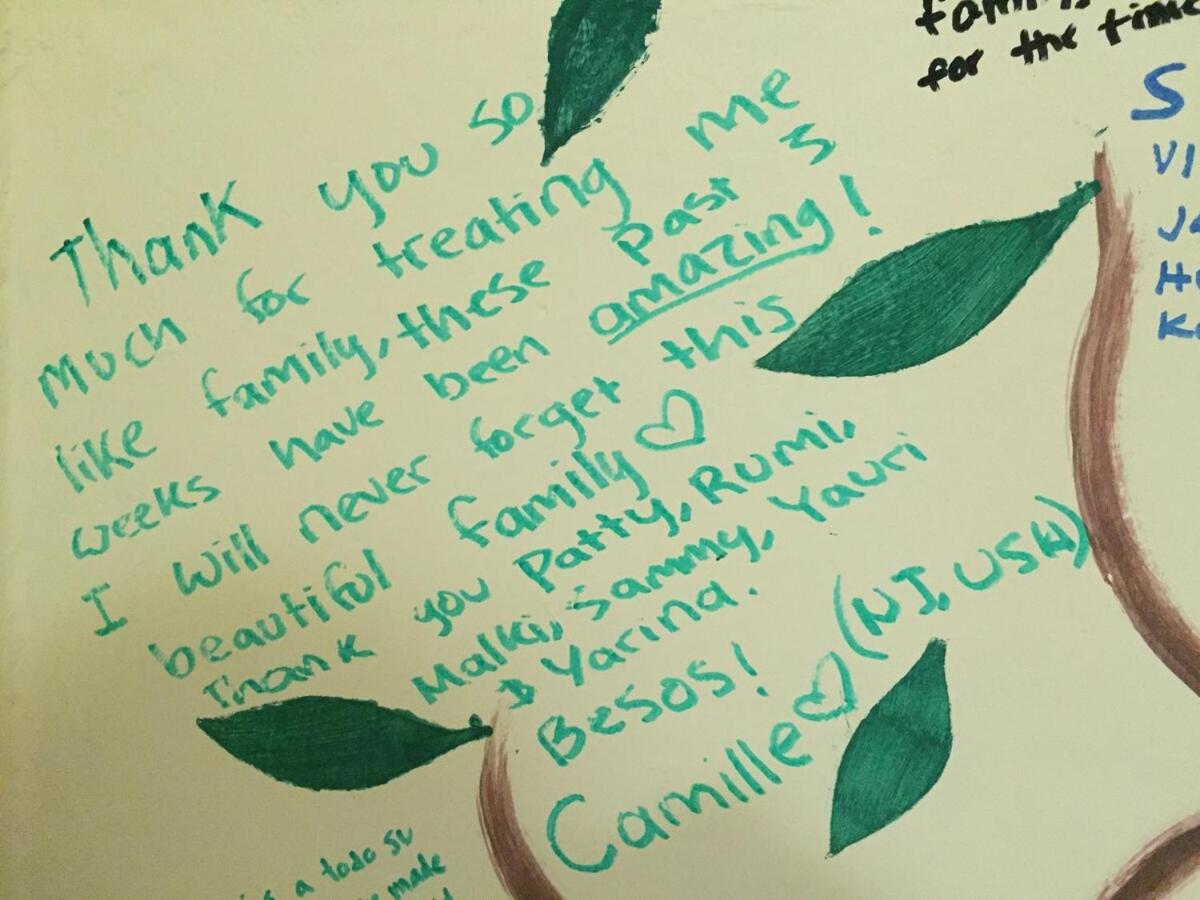 Thank you so
much for treating me
like family, these past 3
weeks have been amazing!
I will never forget this
beautiful family ♡
Thank you Patty, Rumi,
Malki, Sammy, Yauri
& Yarina.
Besos!
Camille ♡ (NJ, USA)
for the time
S
a todo su
made